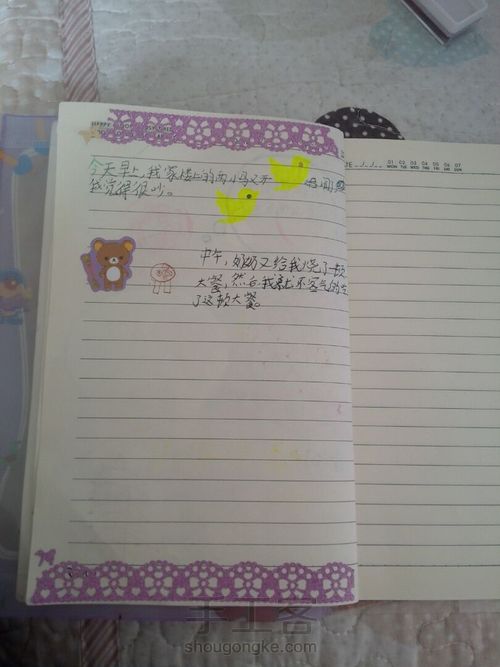 今天早上,我家楼上的两小鸟又开
我觉得很吵。
中午,奶奶又给我烧了一顿
大餐,然后,我就不客气的吃
了这顿大餐。
01 02 03 04 05 06 07
MON TUE WED THU FRI SAT SUN
手工客
shougongke.com